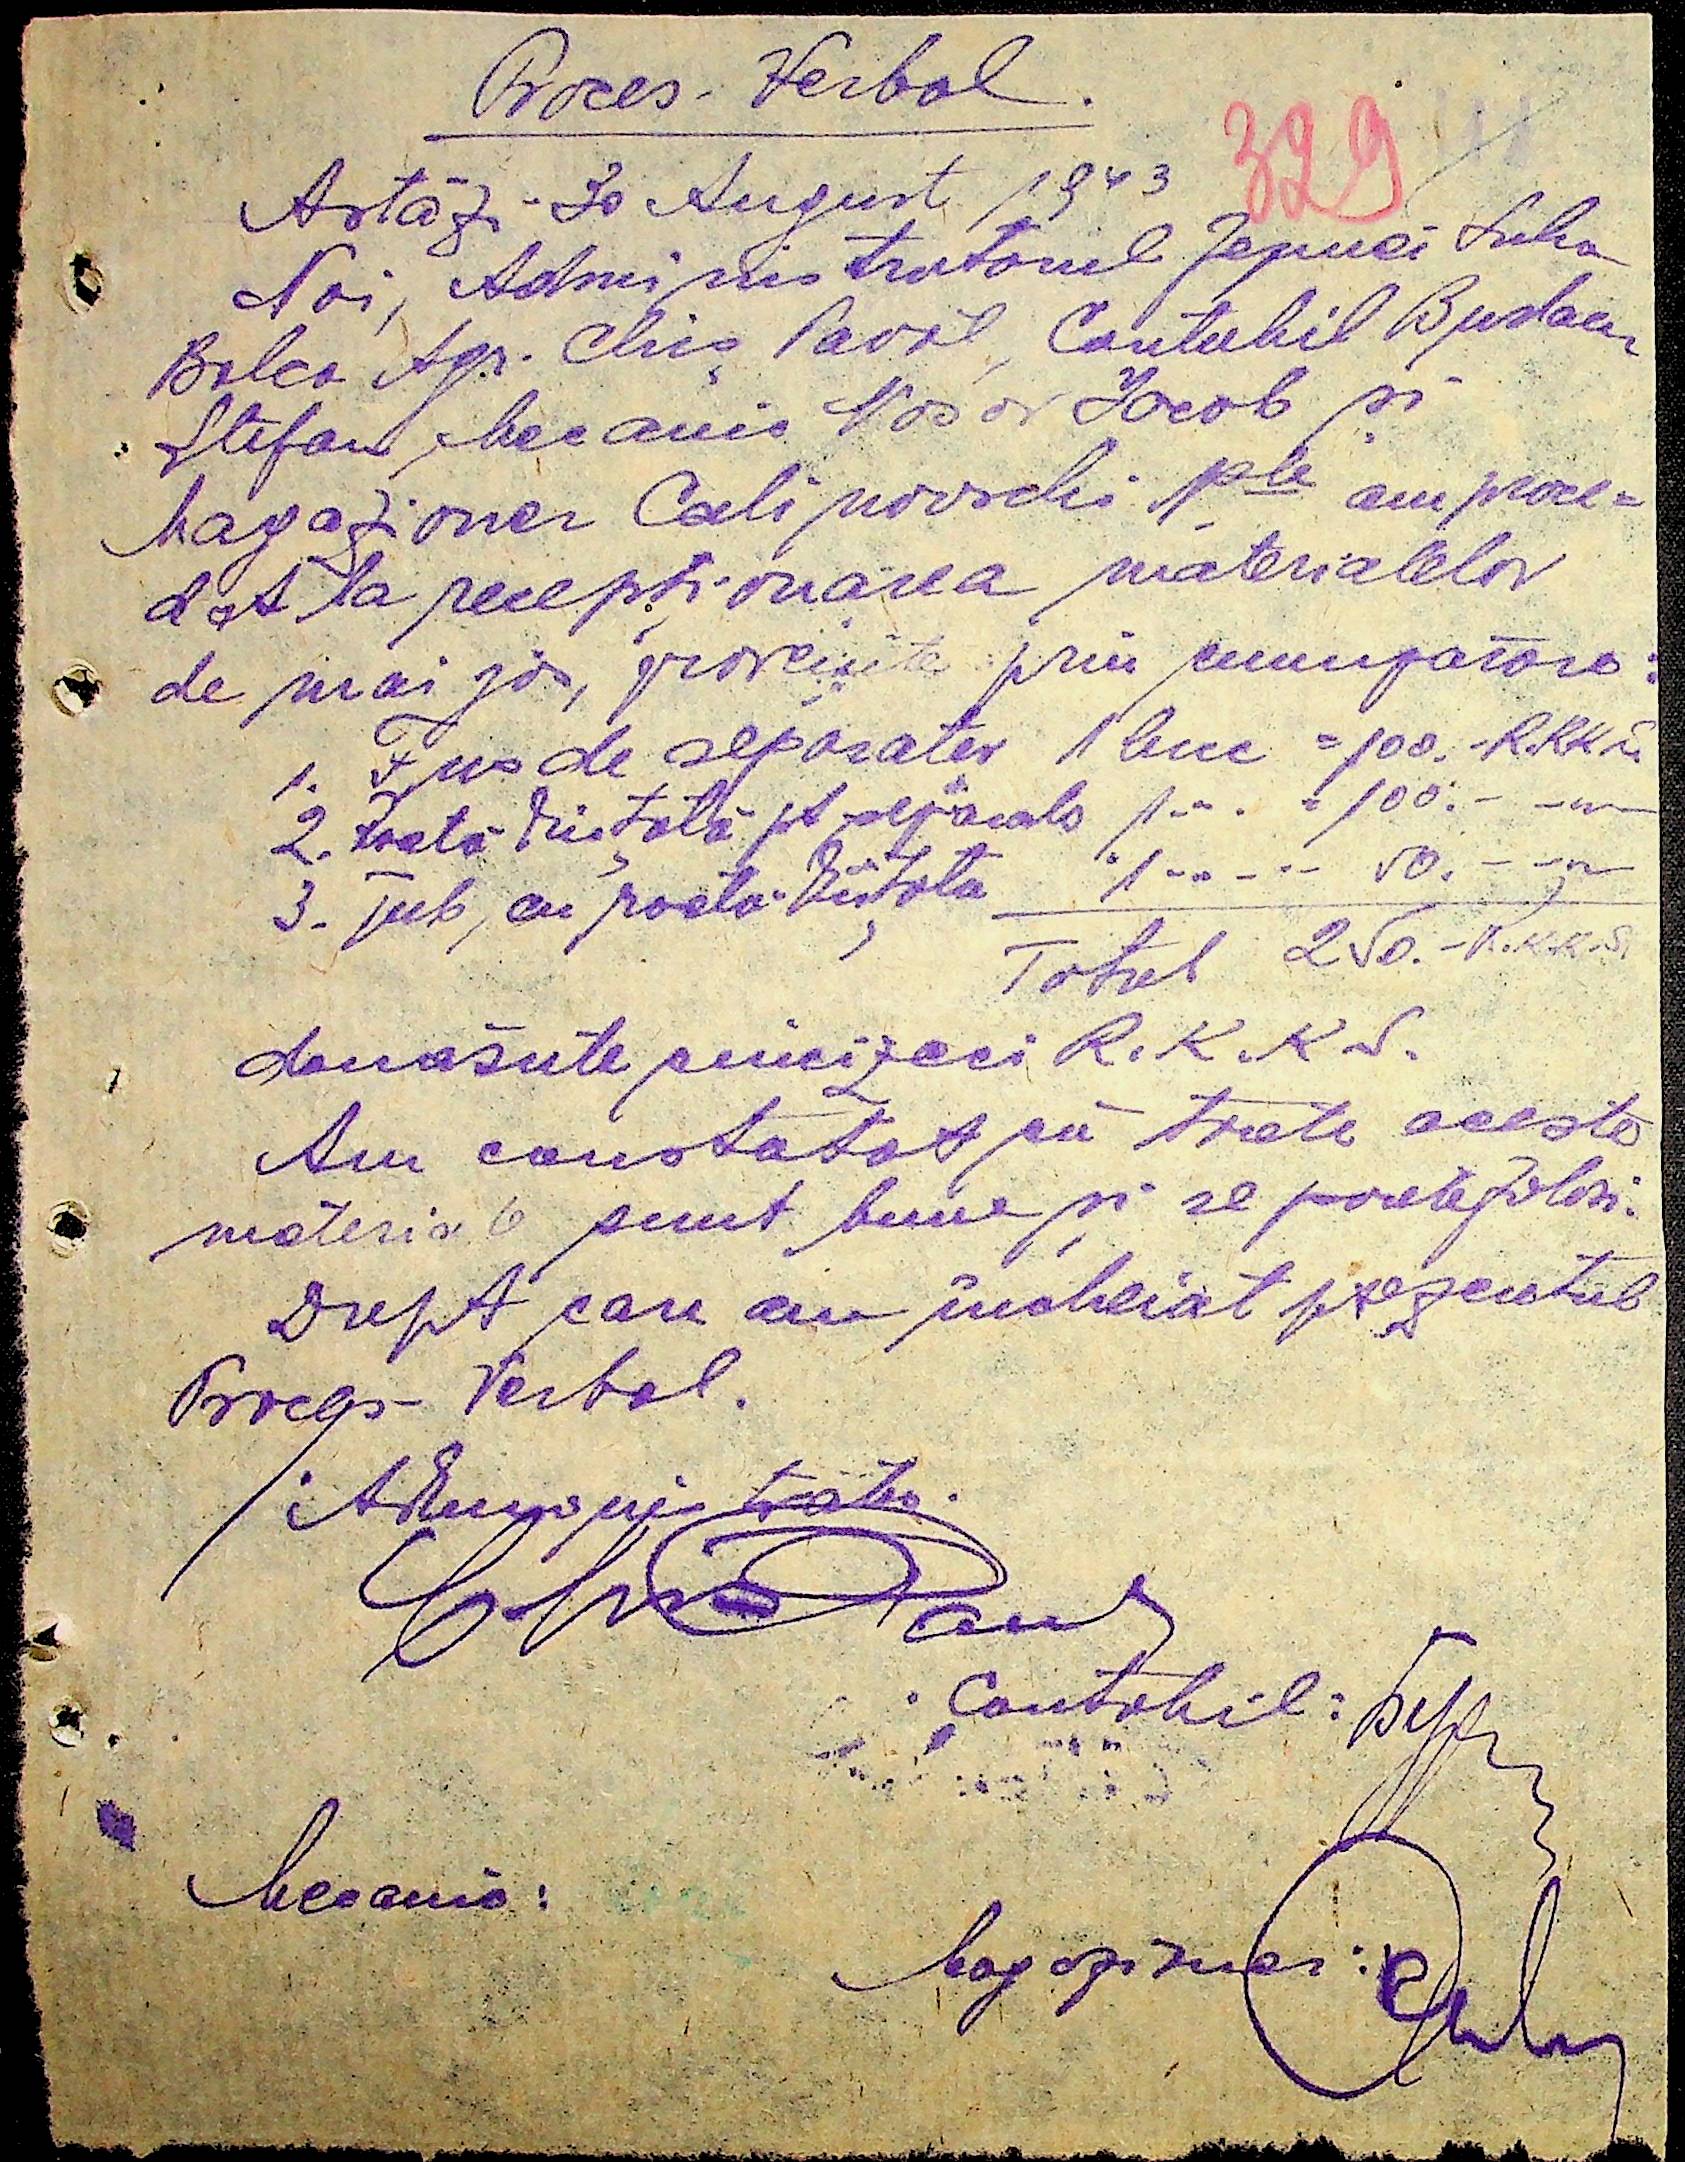 Proces-Verbal.
329
Astăzi 30 August 1943
Noi, Administratorul Fermei Suha
Balca Agr. Chiș Pavel, Contabil Bujdau
Ștefan, Mecanic Nosov Iacob și
Magazioner Calinovschi Nle am proce=
dat la recepționarea materialelor
de mai jos, provenite prin cumpărare:
1. Fus de separator 1 buc = 100.- R.K.K.S.
2. Roată dințată pt separator 1 -"- = 100.- -"-
3. Tub, cu roată dințată 1 -"- -"- 50.- -"-
Total 250.- R.K.K.S.
douăsute cincizeci R.K.K.S.
Am constatat că toate aceste
materiale sunt bune și se poate folosi.
Drept care am încheiat prezentul
Proces-Verbal.
Administrator.
Contabil:
Mecanic:
Magazioner: